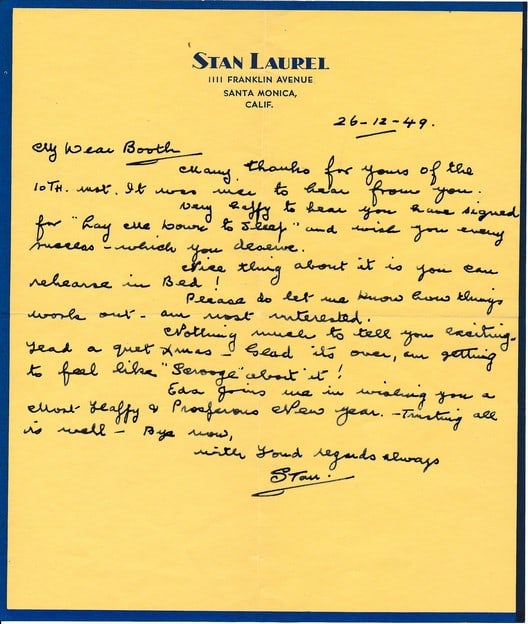 STAN LAUREL
1111 FRANKLIN AVENUE
SANTA MONICA,
CALIF.
26-12-49.
My Dear Booth
Many thanks for yours of the
10TH. inst. It was nice to hear from you.
Very happy to hear you have signed
for "Lay Me Down to Sleep" and wish you every
success - which you deserve.
Nice thing about it is you can
rehearse in Bed!
Please do let me know how things
work out - am most interested.
Nothing much to tell you exciting -
Had a quiet Xmas - Glad it's over, am getting
to feel like "Scrooge" about it!
Eda joins me in wishing you a
Most Happy & Prosperous New Year. - Trusting all
is well - Bye now,
with Fond regards always
Stan.